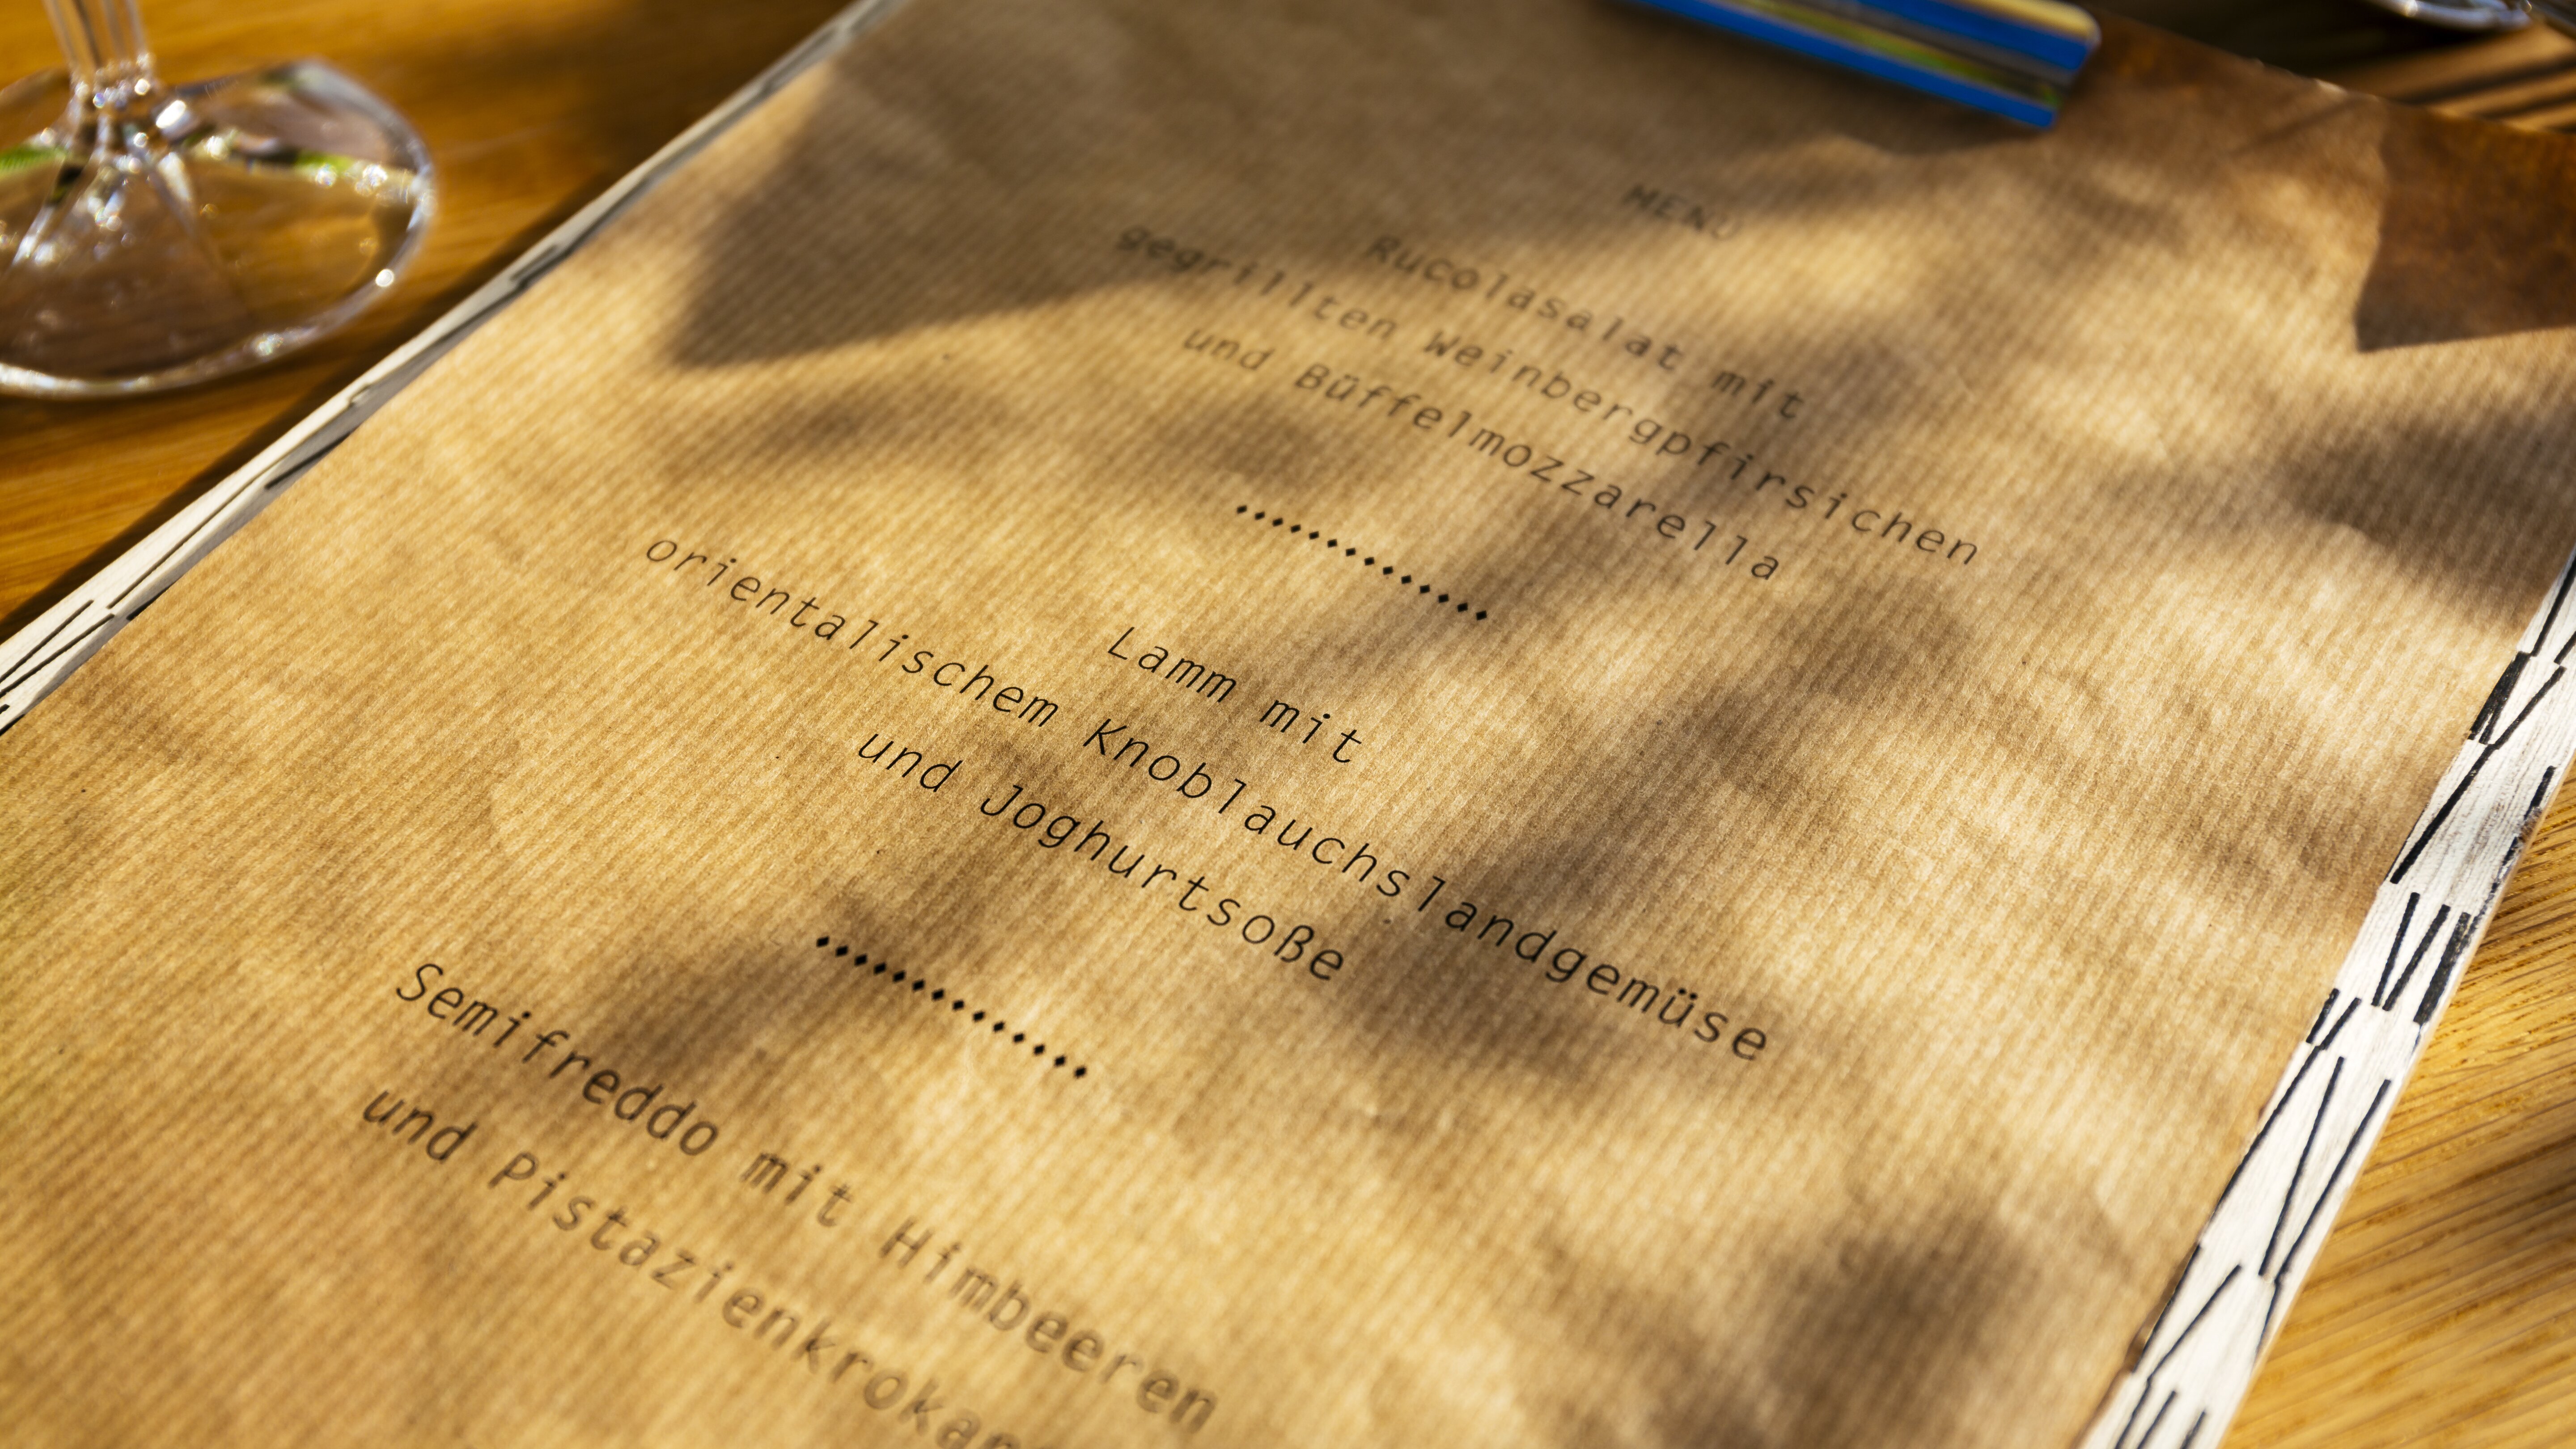 MENÜ
Rucolasalat mit
gegrillten Weinbergpfirsichen
und Büffelmozzarella
Lamm mit
orientalischem Knoblauchslandgemüse
und Joghurtsoße
Semifreddo mit Himbeeren
und